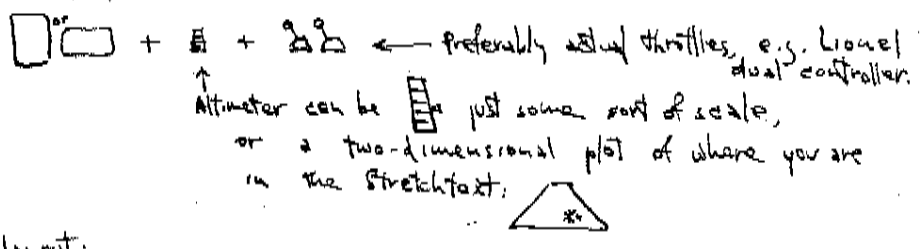 or + + ← Preferably actual throttles, e.g. Lionel
dual controller.
Altimeter can be just some sort of scale,
or a two-dimensional plot of where you are
in the Stretchtext: